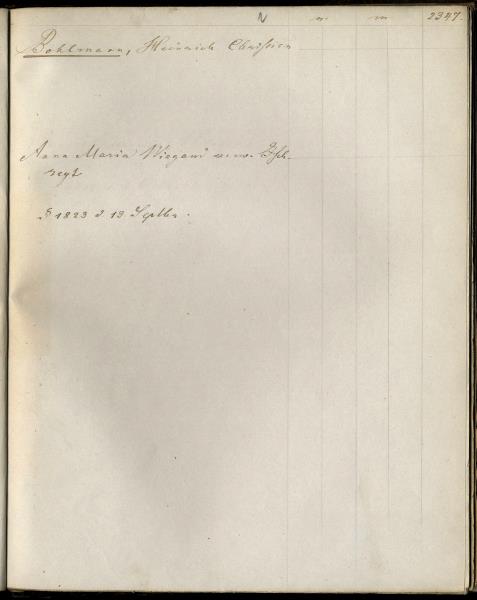 2347.
Bohlmann, Heinrich Christian
Anna Maria Wiegand
1823 d 13 Septbr.